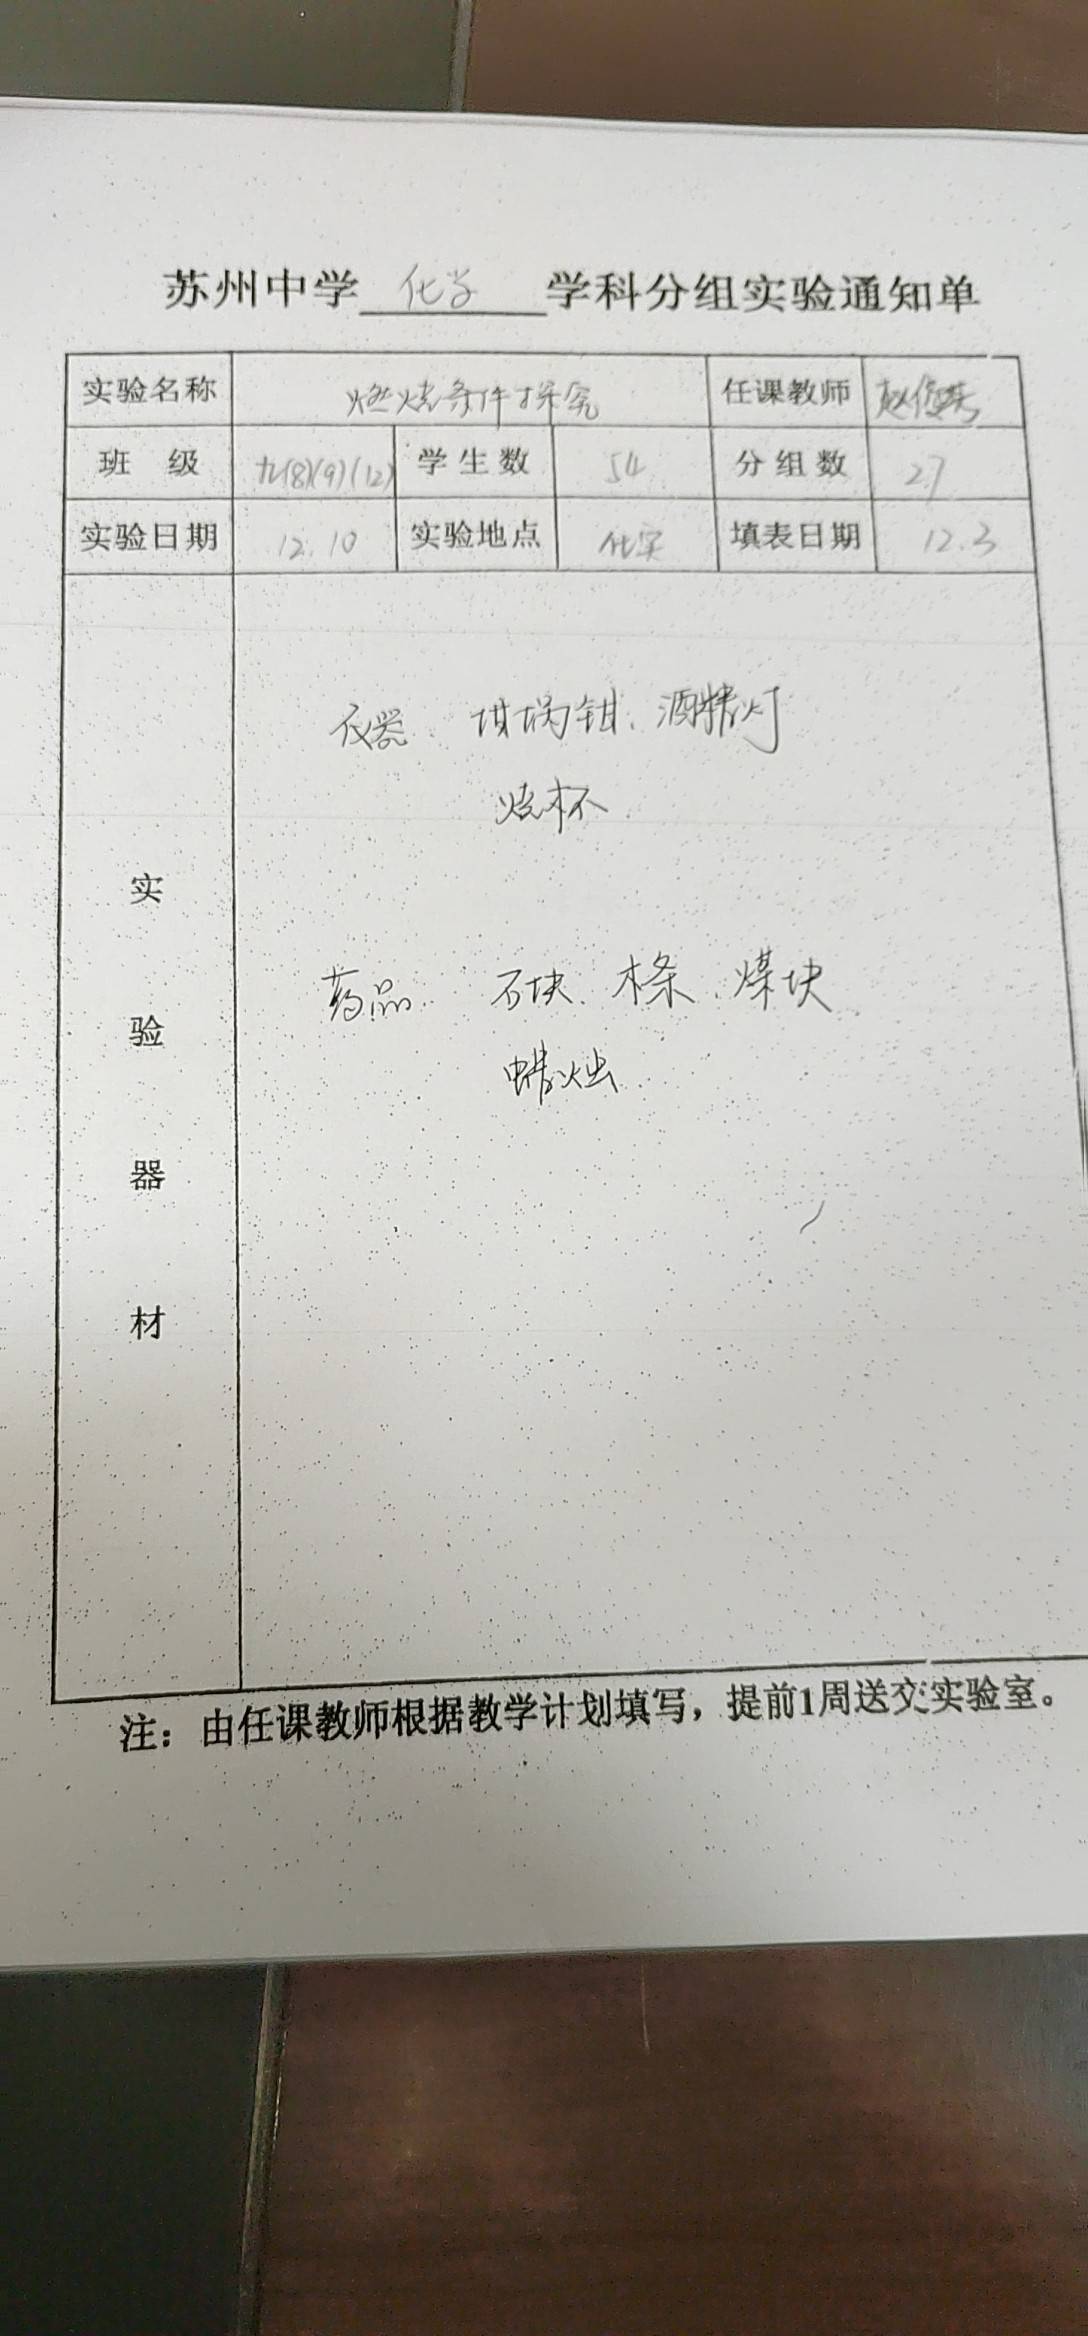 苏州中学 化学 学科分组实验通知单
实验名称 燃烧条件探究 任课教师
班 级 九(8)(9)(12) 学生数 54 分组数 27
实验日期 12.10 实验地点 化实 填表日期 12.3
实验器材
仪器 坩埚钳、酒精灯
烧杯
药品 石块、木条、煤块
蜡烛
注：由任课教师根据教学计划填写，提前1周送交实验室。